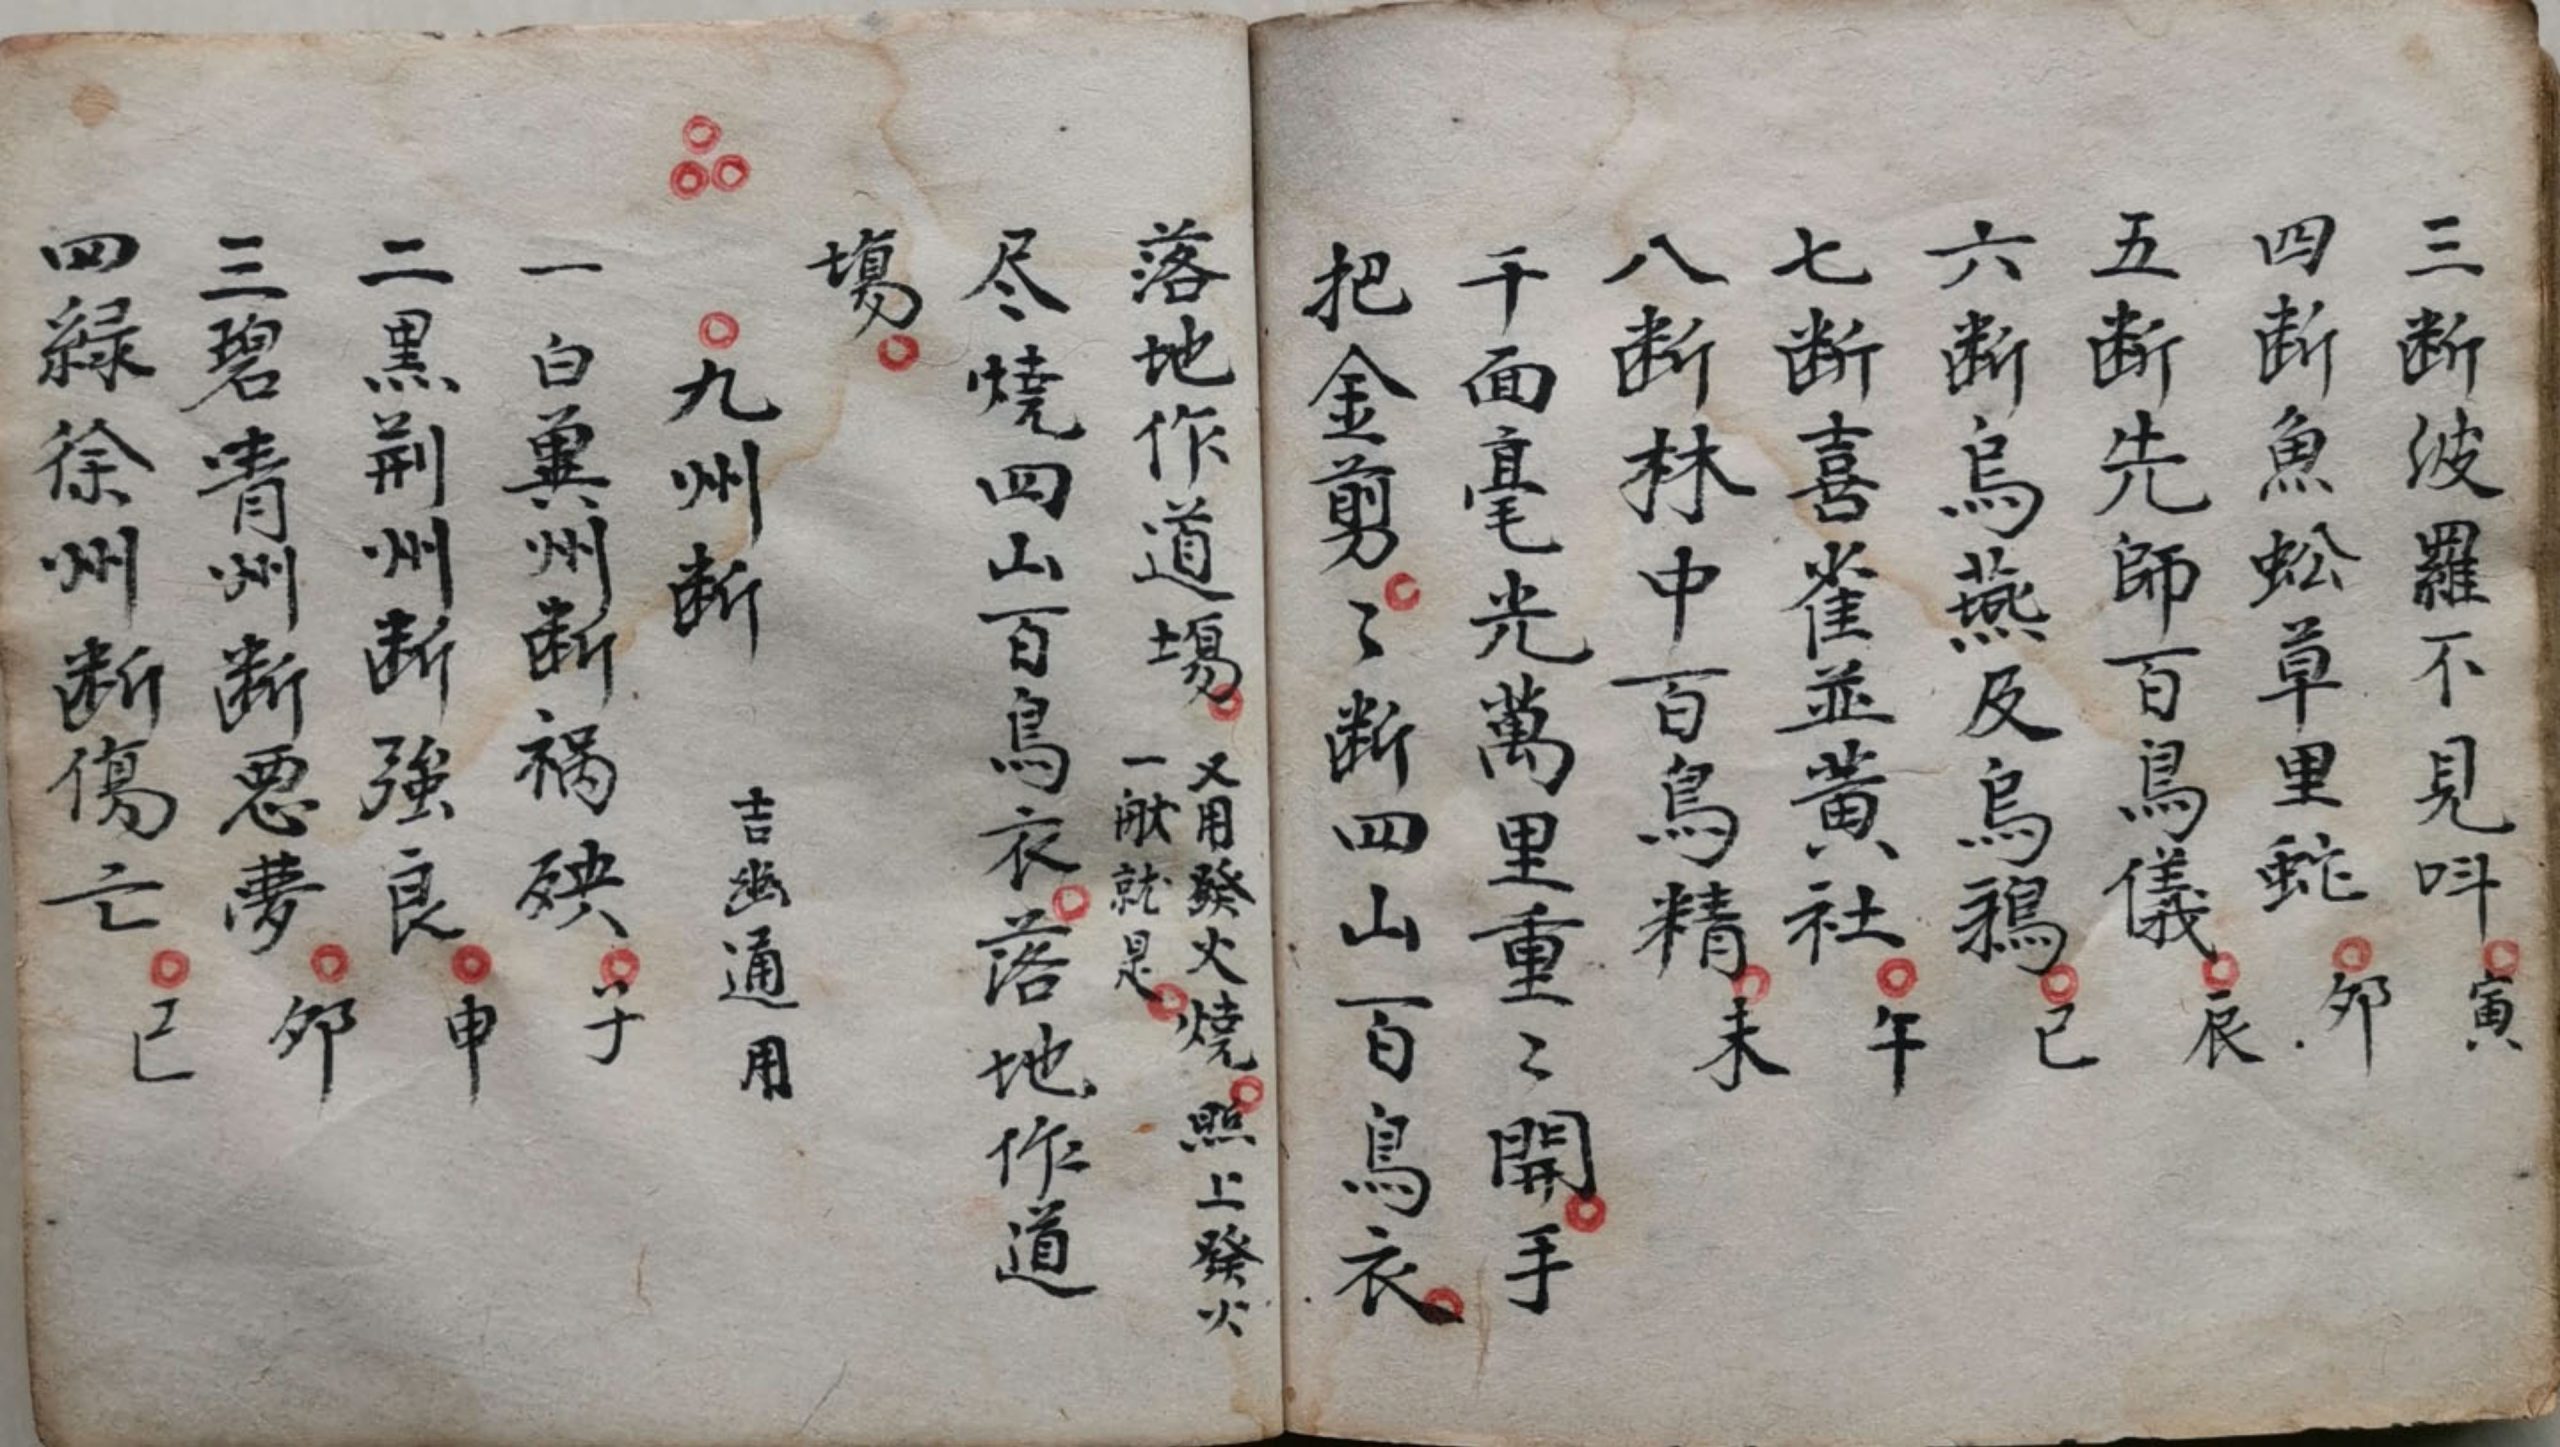 三断波羅不見呌寅
四断魚蚣草里蛇卯
五断先師百鳥儀辰
六断烏燕及烏鴉巳
七断喜雀並黄社午
八断林中百鳥精未
千面毫光萬里重〻開手
把金剪〻断四山百鳥衣
落地作道塲
又用發火燒照上發火
一般就是
尽燒四山百鳥衣落地作道
塲
九州断 吉幽通用
一白冀州断禍殃子
二黒荆州断強良申
三碧青州断悪夢卯
四緑徐州断傷亡巳